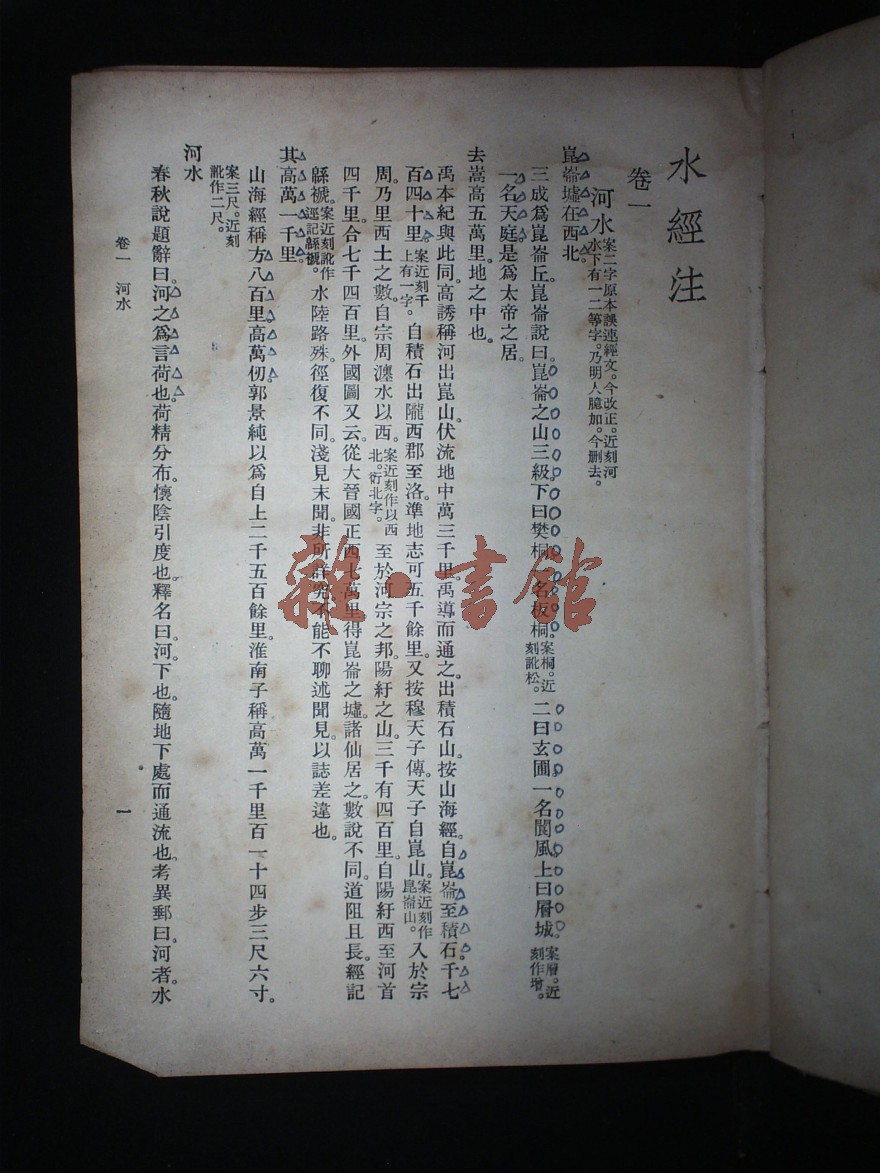 水經注
卷一
河水案二字原本誤連經文。今改正。近刻河水下有一二等字。乃明人臆加。今刪去。
崑崙墟在西北。
三成爲崑崙丘。崑崙說曰。崑崙之山三級。下曰樊桐。一名板桐。案桐。近刻訛松。二曰玄圃。一名閬風。上曰層城。案層。近刻作增。
一名天庭。是爲太帝之居。
去嵩高五萬里。地之中也。
禹本紀與此同。高誘稱河出崑山。伏流地中萬三千里。禹導而通之。出積石山。按山海經。自崑崙至積石。千七
百四十里。案近刻千上有一字。自積石出隴西郡至洛。準地志可五千餘里。又按穆天子傳。天子自崑山。案近刻作崑崙山。入於宗
周。乃里西土之數。自宗周瀍水以西。案近刻作以西北。衍北字。至於河宗之邦。陽紆之山。三千有四百里。自陽紆西至河首
四千里。合七千四百里。外國圖又云。從大晉國正西七萬里。得崑崙之墟。諸仙居之。數說不同。道阻且長。經記
緜褫。案近刻訛作逕記緜䙫。水陸路殊。徑復不同。淺見末聞。非所詳究。不能不聊述聞見。以誌差違也。
其高萬一千里。
山海經稱方八百里。高萬仞。郭景純以爲自上二千五百餘里。淮南子稱高萬一千里百一十四步三尺六寸。
案三尺。近刻訛作二尺。
河水
春秋說題辭曰。河之爲言荷也。荷精分布。懷陰引度也。釋名曰。河。下也。隨地下處而通流也。考異郵曰。河者。水
卷一 河水
一
雜·書館